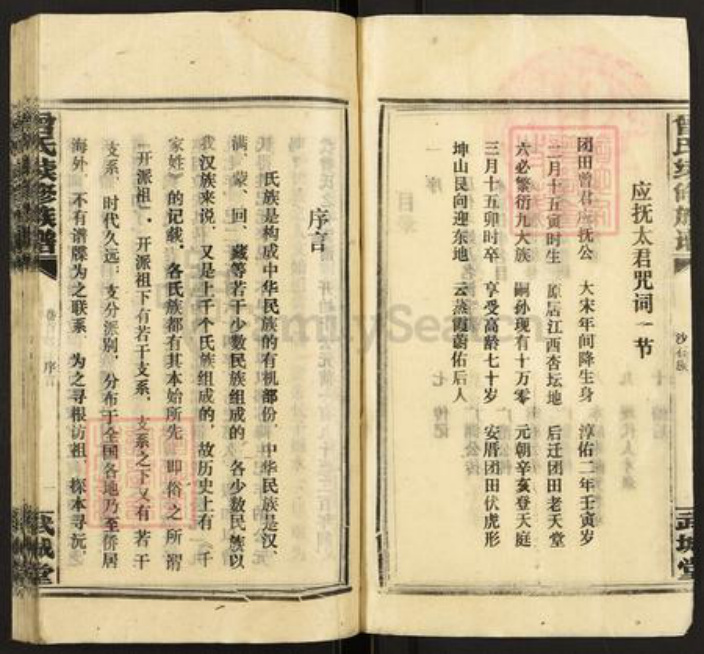 应抚太君咒词一节
团田曾君应抚公 大宋年间降生身 淳佑二年壬寅岁
二月十五寅时生 原居江西杏坛地 后迁团田老天堂
六必繁衍九大族 嗣孙现有十万零 元朝辛亥登天庭
三月十五卯时卒 享受高龄七十岁 安厝团田伏虎形
坤山艮向迎东地 云蒸霞蔚佑后人
武城堂
序言
氏族是构成中华民族的有机部份，中华民族是汉、
满、蒙、回、藏等若干少数民族组成的，各少数民族以
我汉族来说，又是上千个氏族组成的，故历史上有《千
家姓》的记载。各氏族都有其本始所先，即俗之所谓
“开派祖”。开派祖下有若干支系，支系之下又有若干
支系，时代久远，支分派别，分布于全国各地乃至侨居
海外，不有谱牒为之联系，为之寻根访祖，探本寻沅，
曾氏续修族谱
序言
一
武城堂
FamilySearch